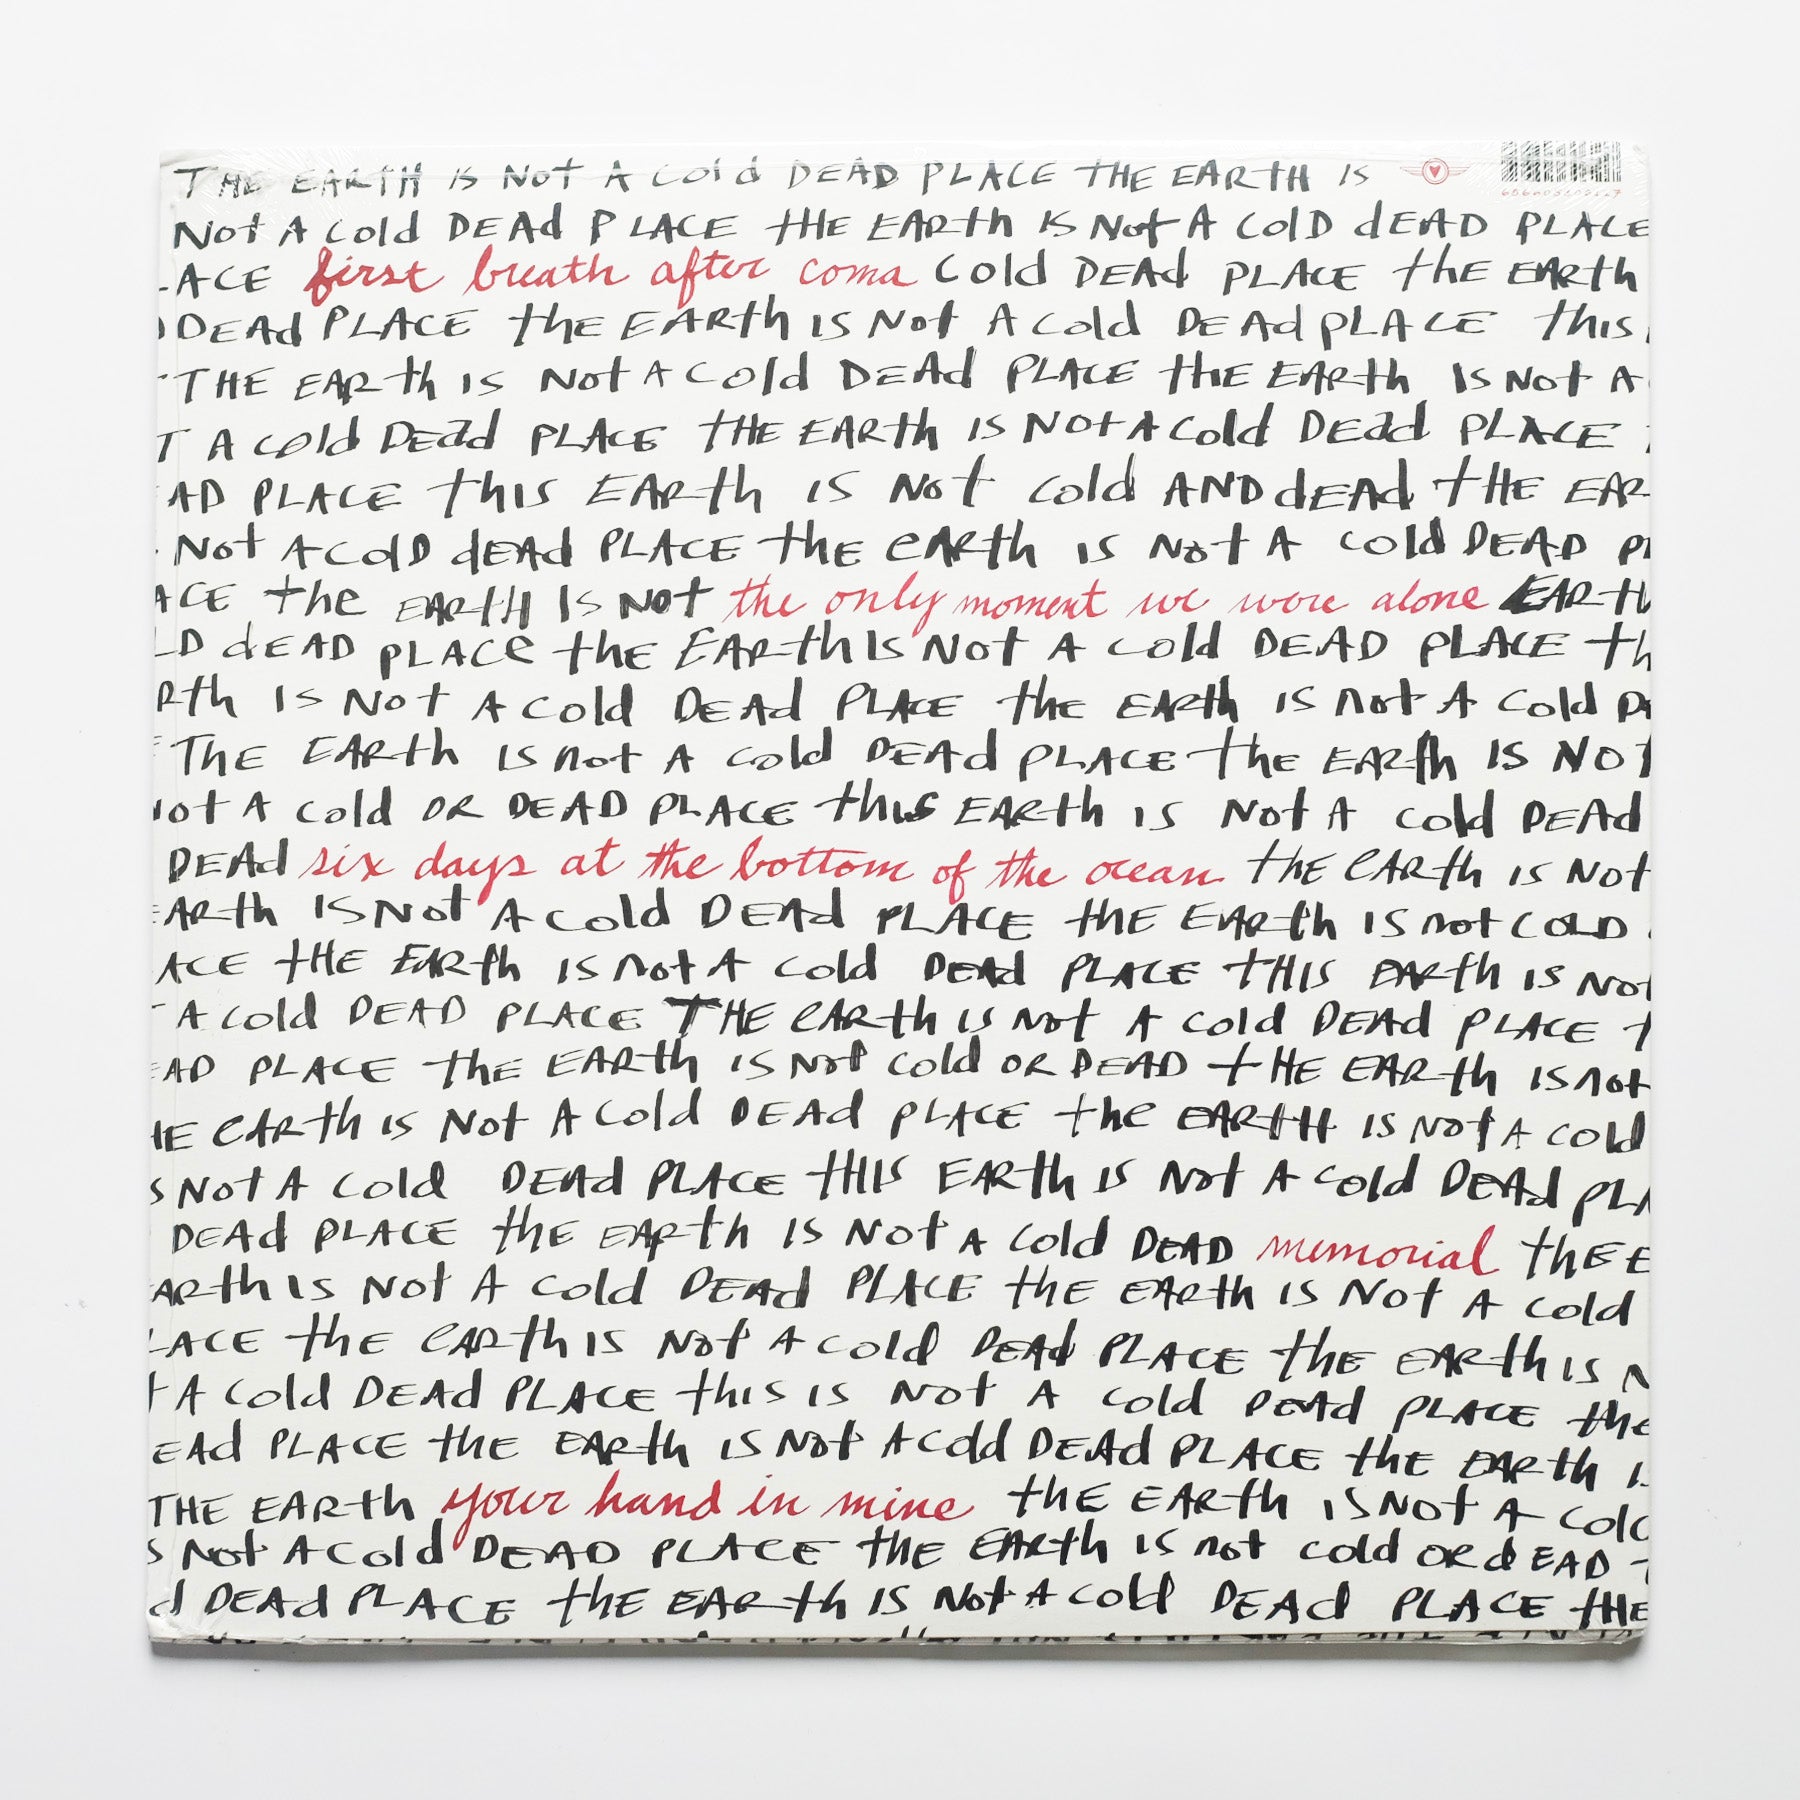 THE EARTH IS Not A Cold DEAD PLACE THE EARTH IS
Not A Cold DEAd PLACE tHE EARth IS Not A ColD dEAD PLACE
ACE first breath after coma Cold DEAd PLACE thE EARth
DEAd PLACE thE EARth IS Not A Cold DEAd PLACE this
THE EARth IS Not A Cold DEAd PLACE tHE EARth IS Not A
T A Cold DEad PLACE tHE EARth IS Not A Cold DEad PLACE
AD PLACE thIS EARth IS Not Cold AND dEAd tHE EAR
Not A ColD dEAd PLACE thE eARth IS Not A Cold DEAD Pl
ACE the EARtH IS Not the only moment we were alone EARth
LD dEAD PLACe thE EARth IS Not A Cold DEAD PLACE th
Rth IS Not A Cold DEAd PLACE thE EARth IS not A Cold D
THE EARth IS not A Cold DEAd PLACE thE EARth IS NOT
Not A Cold OR DEAD PLACE this EARth IS Not A Cold DEAd
DEAd six days at the bottom of the ocean thE eARth IS Not
EARth IS Not A Cold DEAd PLACE thE EARth IS not COLD
ACE tHE EARth IS not A Cold DEAd PLACE tHIS EARth IS Not
A Cold DEAD PLACE THE eARth IS Not A Cold DEAd PLACE t
EAD PLACE thE EARth IS Not Cold OR DEAD tHE EARth IS not
HE eARth IS Not A Cold DEAd PLACE the EARtH IS Not A Cold
S Not A Cold DEAd PLACE tHIS EARth IS Not A Cold DEAd PLA
DEAd PLACE thE EARth IS Not A Cold DEAD memorial thE E
ARth IS Not A Cold DEAd PLACE thE EARth IS Not A Cold
LACE thE eARth IS Not A Cold DEAd PLACE thE EARth IS N
t A Cold DEAd PLACE this IS Not A Cold DEAd PLACE the
EAd PLACE thE EARth IS Not A Cold DEAd PLACE thE EARth I
THE EARth your hand in mine thE EARth IS Not A Cold
S Not A Cold DEAD PLACE thE EARth IS not Cold OR dEAD
d DEAd PLACE thE EARth IS Not A Cold DEAd PLACE tHE